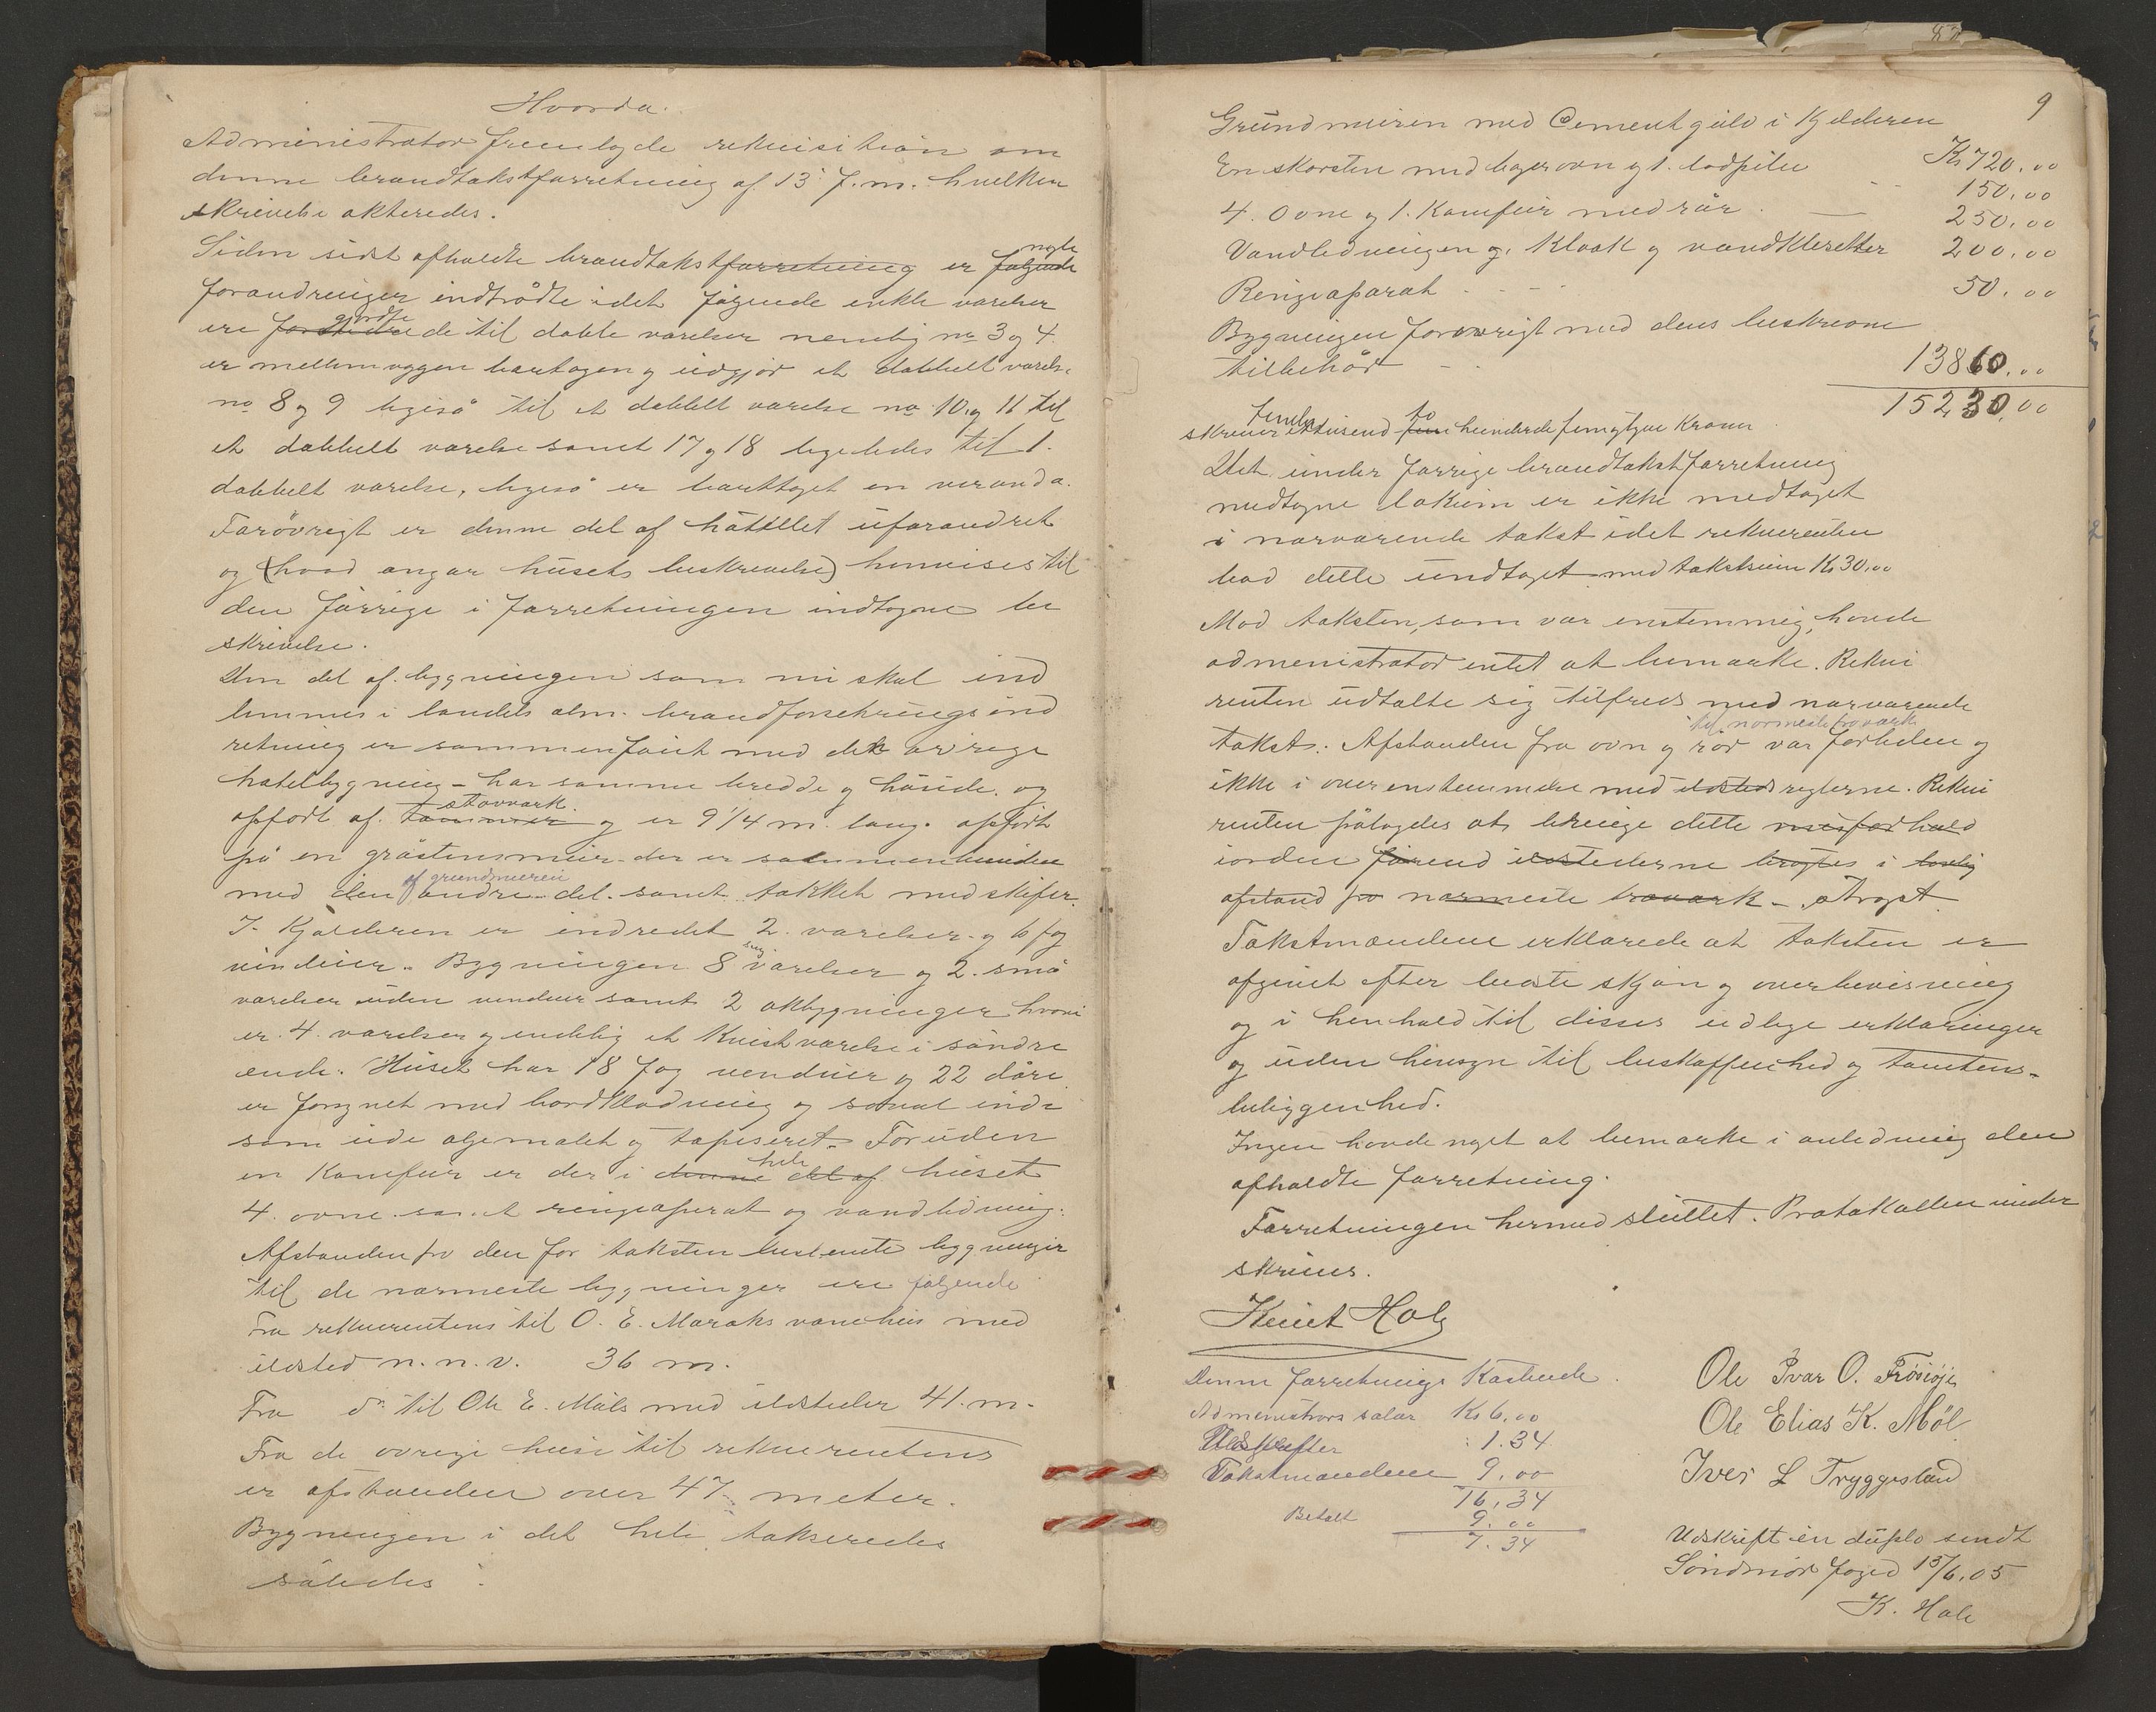 Hvorda.
Administrator fremlagde rekvisition om
denne brandtakstforretning af 13 f.m. hvilken
skrivelse akteredes.
Siden sidst afholdte brandtakstforretning er følgende nogle
forandringer indtrådte idet følgende enkle værelser
ere gjordte til doble værelser nemlig no 3 og 4.
er mellemveggen borttagen og udgjør et dobbelt værelse
no 8 og 9 ligeså til et dobbelt værelse no 10 og 11 til
et dobbelt værelse samt 17 og 18 ligeledes til 1.
dobbelt værelse, ligeså er borttaget en veranda.
Forøvrigt er denne del af hotellet uforandret
og (hvad angar husets beskrivelse) henvises til
den førrige i forretningen indtagne be
skrivelse.
Den del af bygningen som nu skal ind
lemmes i landets alm. brandforsekringsind
retning er sammenføiet med det øvrige
hotelbygning – har samme bredde og høide og
opført af tømmer stavværk og er 9 1/4 m. lang. opført
på en gråstensmuir der er sammenbunden
med den andre del af grundmuren samt takket med skifer.
I Kjælderen er indredet 2 værelser og 6 fag
vinduer. Bygningen 8 værelser og 2 små
værelser uden vinduer samt 2 akbygninger hvori
er 4 værelser og endelig et Kvistværelse i søndre
ende. Huset har 18 fag venduer og 22 døre
er forsynet med bordklædning og såvel inde
som ude oljemalet og tapiseret. Foruden
en Komfuir er der i denne del af hele huset
4 ovne samt ringeaparat og vandledning.
Afstanden fra den for taksten bestemte bygninger
til de nærmeste bygninger ere følgende
Fra rekvirentens til O. E. Maraks vånehus med
ildsted n. n. v. 36 m.
Fra do til Ole E. Møls med ildsteder 41. m.
Fra de øvrige huse til rekvirentens
er afstanden over 47 meter.
Bygningen i det hele takseredes
således :
9
Grundmuren med Cementgulv i Kjelderen Kr 720.00
En skorsten med bagerovn og 1. lodpibe 150.00
4. Ovne og 1. Komfuir med rør 250.00
Vandledningen og Kloak og vandkloretter 200.00
Ringeaparat 50.00
Bygningen forøvrigt med dens beskrevne
tilbehør 13860.00
15230.00
skriver Femten tusend fem to hundrede femogtyve Kroner
Det under forrige brandtakstforretning
medtagne lokum er ikke medtaget
i nærværende takst idet rekvirenten
bad dette undtaget med takstsum Kr 30.00
Mod taksten, som var enstemmig, havde
administrator intet at bemærke. Rekvi
renten udtalte sig tilfreds med nærværende
takst. Afstanden fra ovn og rør til nærmeste træværk var forliden og
ikke i overensstemmelse med ildsteds reglerne. Rekvi
renten pålagdes at bringe dette misforhold
iorden førend ildstederne bragtes i lovlig
afstand fra nærmeste træværk – strøgst
Takstmændene erklærede at taksten er
afgivet efter bedste skjøn og overbevisning
og i henhold til disses edlige erklæringer
og uden hensyn til beskaffenhed og tomtens-
beliggenhed.
Ingen havde noget at bemærke i anledning den
afholdte forretning.
Forretningen hermed sluttet. Protokollen under
skrives.
Knut Hole
Denne forretnings Kostende
Administrors salær Kr 6.00
Udskrifter 1.34
Takstmændene 9.00
16.34
Betalt 9.00
7.34
Ole Ivar O. Frøsiøje
Ole Elias K. Møl
Iver L Tryggestad
Udskrift én duplo sendt
Søndmør foged 15/6.05
K. Hole